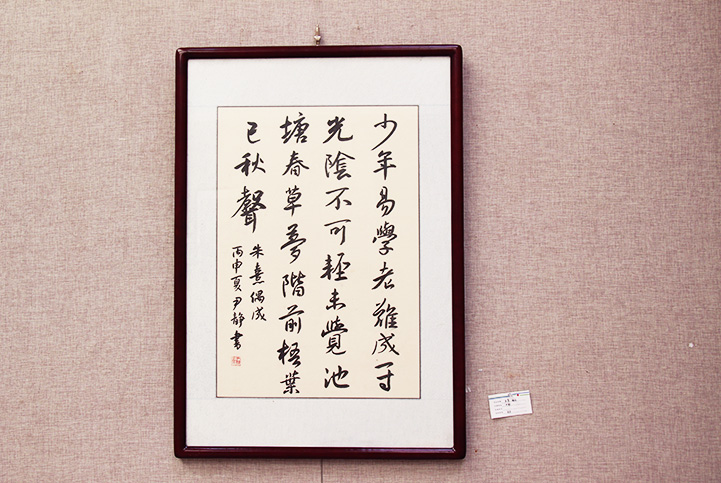 少年易學老難成寸
光陰不可輕未覺池
塘春草夢階前梧葉
已秋聲
朱熹偶成
丙申夏尹靜書